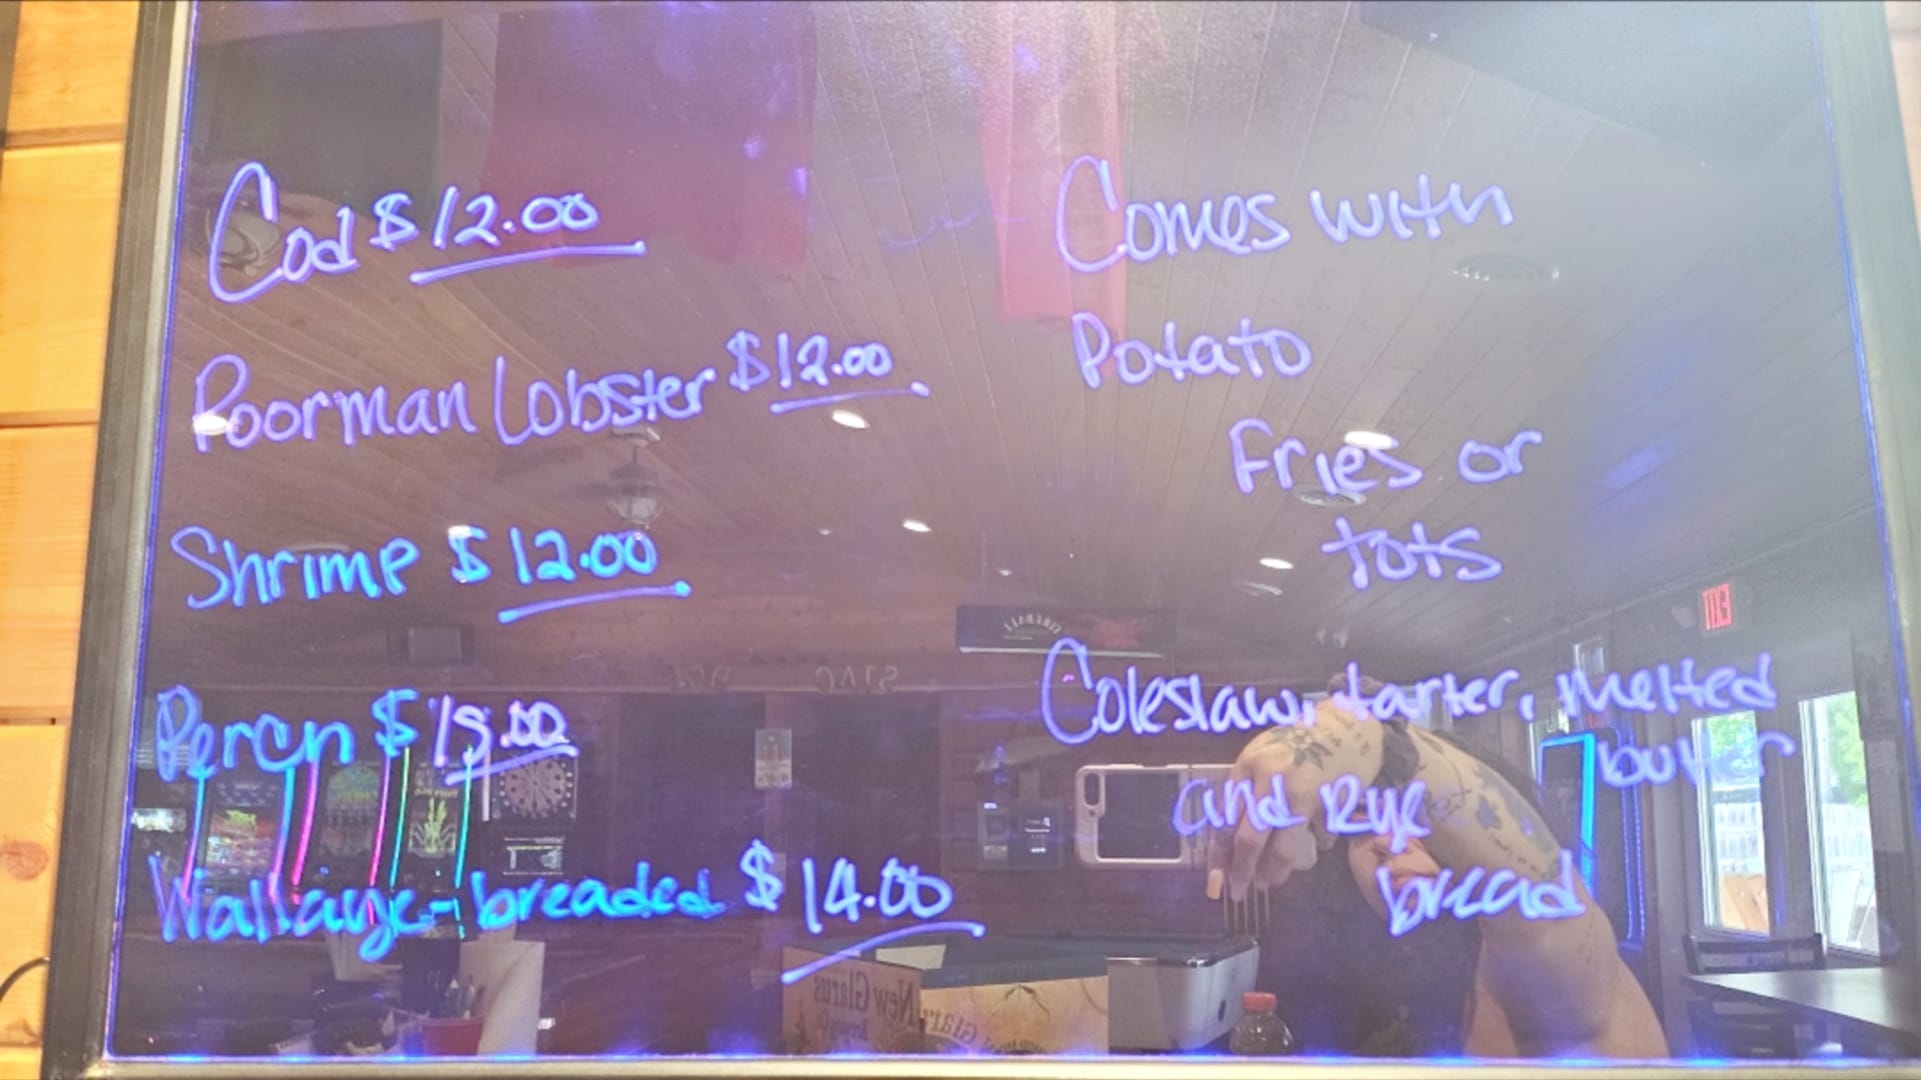 Cod $12.00
Poorman Lobster $12.00
Shrimp $12.00
Perch $15.00
Wallaye-breaded $14.00
Comes with
Potato
Fries or
tots
Coleslaw, tarter, melted
butter
and Rye
bread
EXIT
New Glarus